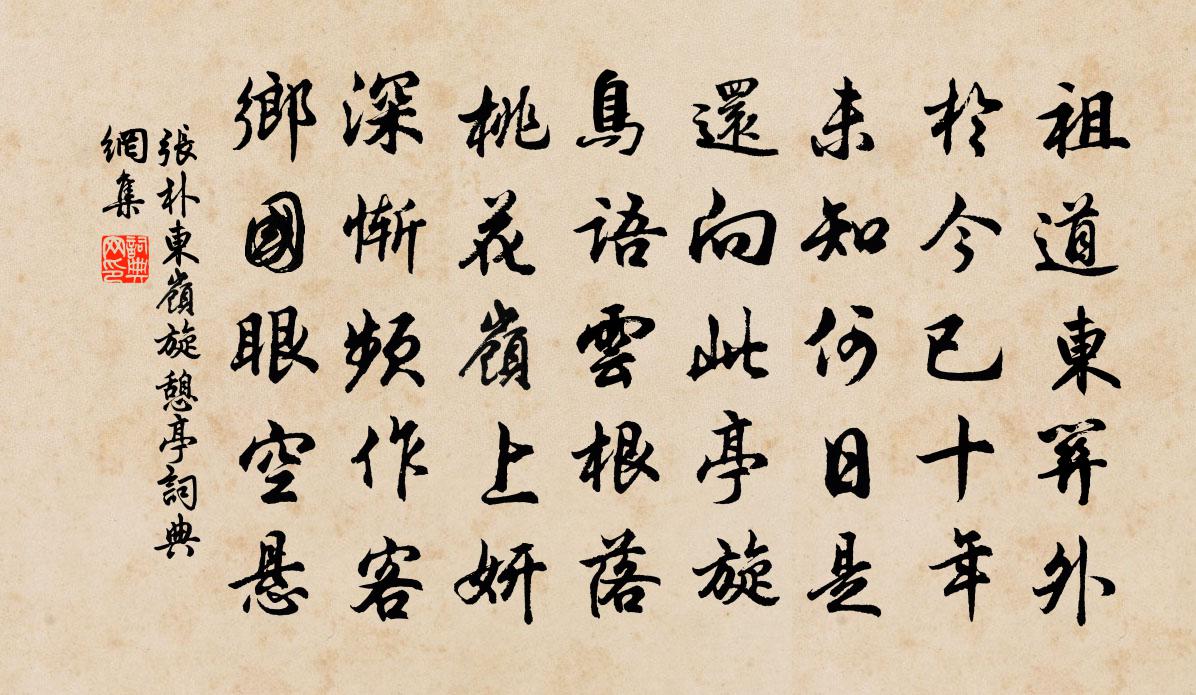 祖道東關外
於今已十年
未知何日是
還向此亭旋
鳥語雲根落
桃花嶺上妍
深慚頻作客
鄉國眼空悬
張朴東嶺旋憩亭詞典
網集
詞典
网印